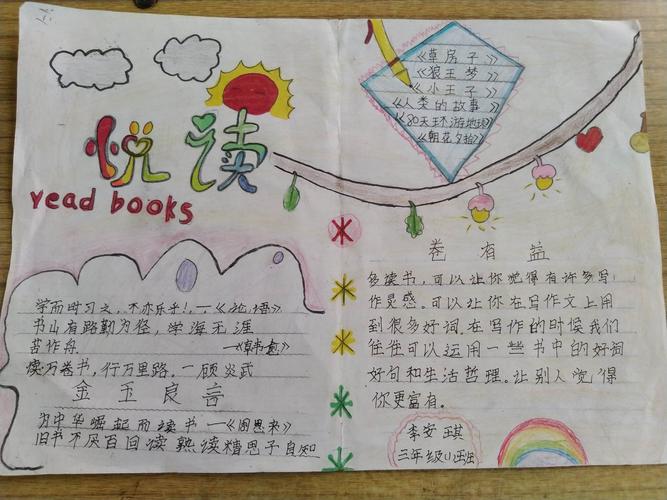 悦读
yead books
《草房子》
《狼王梦》
《小王子》
《人类的故事》
《80天环游地球》
《朝花夕拾》
学而时习之，不亦乐乎！—《论语》
书山有路勤为径，学海无涯
苦作舟
读万卷书，行万里路。—顾炎武
金玉良言
为中华崛起而读书—《周恩来》
旧书不厌百回读熟读精思子自知
卷有益
多读书，可以让你觉得有许多写
作灵感。可以让你在写作文上用
到很多好词。在写作的时候我们
往往可以运用一些书中的好词
好句和生活哲理。让别人觉得
你更富有。
李安琪
三年级